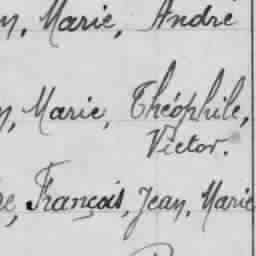 n, Marie, André
n, Marie, Théophile,
Victor.
re, François, Jean, Marie